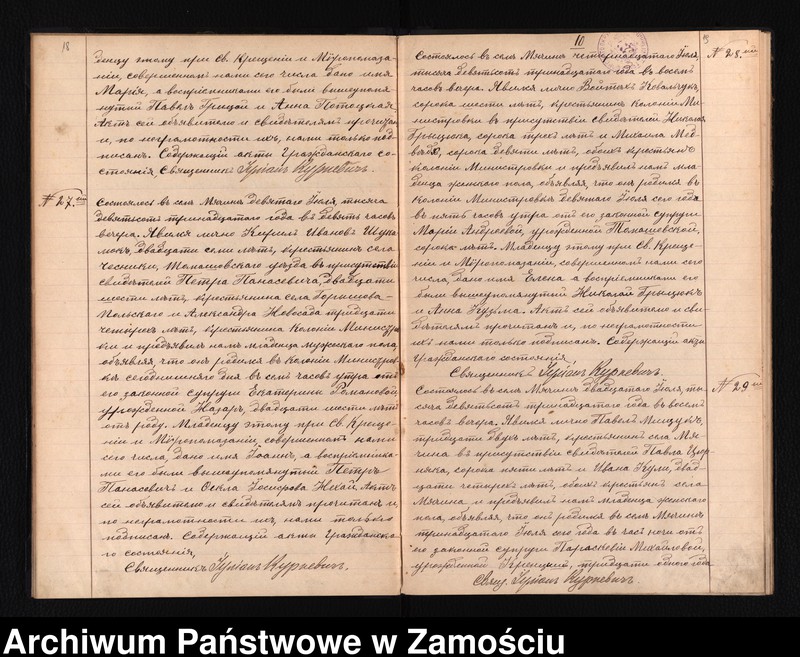 18
денцу этому при Св. Крещеніи и Мѵропомаза-
ніи, совершенномъ нами сего числа дано имя
Марія, а воспріемниками его были вышеупомя-
нутый Павелъ Грицай и Анна Потоцкая.
Актъ сей объявителю и свидѣтелямъ прочитанъ
и, по неграмотности ихъ, нами только под-
писанъ. Содержащій акты гражданскаго со-
стоянія, Священникъ Курневичъ.
№ 27.
Состоялось въ селѣ Мячинъ девятаго Іюля, тысяча
девятьсотъ тринадцатаго года въ девять часовъ
вечера. Явился лично Кирилъ Ивановъ
двадцати семи лѣтъ, крестьянинъ села
Чесники, Томашовскаго уѣзда въ присутствіи
свидѣтелей Петра Панасевича, двадцати
шести лѣтъ, крестьянина села Горышова-
Польскаго и Александра Новосада тридцати
четырехъ лѣтъ, крестьянина колоніи Министров-
ки и предъявилъ намъ младенца мужескаго пола,
объявляя, что онъ родился въ колоніи Министров-
кѣ сегодняшняго дня въ семь часовъ утра отъ
его законной супруги Екатерины Романовой,
урожденной Назаръ, двадцати шести лѣтъ
отъ роду. Младенцу этому при Св. Креще-
ніи и Мѵропомазаніи, совершенномъ нами
сего числа, дано имя Іоаннъ, а воспріемника-
ми его были вышеупомянутый Петръ
Панасевичъ и
сей объявителю и свидѣтелямъ прочитанъ и,
по неграмотности ихъ, нами только
подписанъ. Содержащій акты гражданска-
го состоянія,
Священникъ Курневичъ.
10
Состоялось въ селѣ Мячинъ четырнадцатаго Іюля,
тысяча девятьсотъ тринадцатаго года въ восемь
часовъ вечера. Явился лично Войтѣхъ Ковальчукъ,
сорока шести лѣтъ, крестьянинъ колоніи Ми-
нистровки въ присутствіи свидѣтелей Николая
Грыцюка, сорока трехъ лѣтъ и Михаила Мед-
сорока девяти лѣтъ, обоихъ крестьянъ
колоніи Министровки и предъявилъ намъ мла-
денца женскаго пола, объявляя, что онъ родился въ
колоніи Министровкѣ девятаго Іюля сего года
въ пять часовъ утра отъ его законной супруги
Маріи Андреевой, урожденной Томашевской,
сорока лѣтъ. Младенцу этому при Св. Креще-
ніи и Мѵропомазаніи, совершенномъ нами сего
числа, дано имя Елена а воспріемниками его
были вышеупомянутый Николай Грыцюкъ
и Анна Кузьма. Актъ сей объявителю и сви-
дѣтелямъ прочитанъ и, по неграмотности
ихъ нами только подписанъ. Содержащій акты
гражданскаго состоянія
Священникъ Курневичъ.
№ 28.
Состоялось въ селѣ Мячинъ двадцатаго Іюля, ты-
сяча девятьсотъ тринадцатаго года въ восемь
часовъ вечера. Явился лично Павелъ Мищукъ,
тридцати двухъ лѣтъ, крестьянинъ села Мя-
чина въ присутствіи свидѣтелей Павла
сорока пяти лѣтъ и Ивана Кули, двад-
цати четырехъ лѣтъ, обоихъ крестьянъ села
Мячина и предъявилъ намъ младенца женскаго
пола, объявляя, что онъ родился въ селѣ Мячинѣ
тринадцатаго Іюля сего года въ часъ ночи отъ
его законной супруги Параскевіи Михайловой,
урожденной тридцати одного года
Свящ. Курневичъ.
№ 29
Archiwum Państwowe w Zamościu